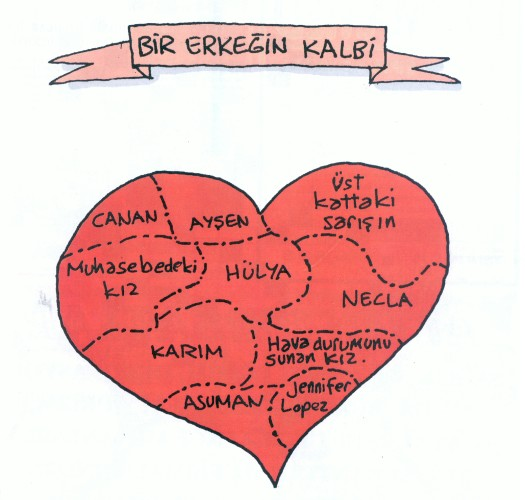 BİR ERKEĞİN KALBİ
CANAN
AYŞEN
Üst
kattaki
sarışın
Muhasebedeki
kız
HÜLYA
NECLA
KARIM
Hava durumunu
sunan kız.
ASUMAN
Jennifer
Lopez